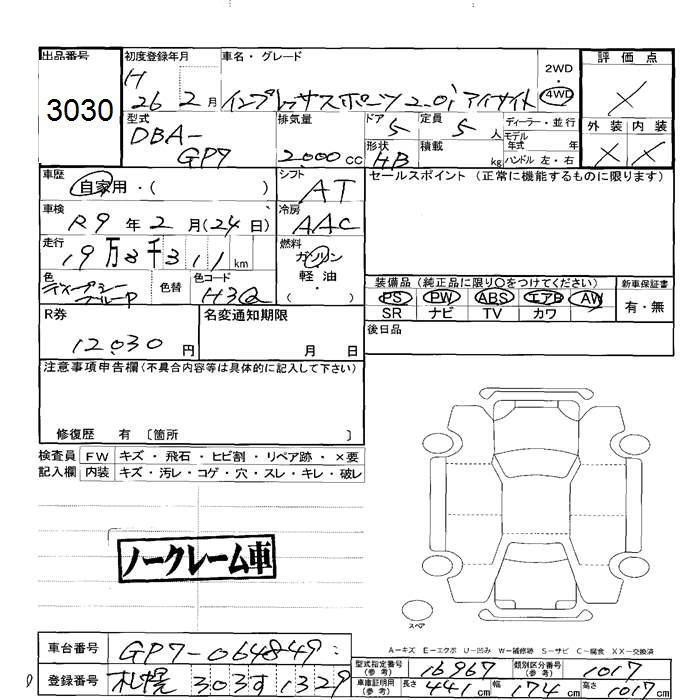 出品番号
3030
初度登録年月
H
26 2 月
車名・グレード
インプレッサスポーツ 2.0i アイサイト
2WD
・
4WD
評価点
×
外装 内装
× ×
型式
DBA-
GP7
排気量
2000 cc
ドア
5
定員
5 人
ディーラー・並行
モデル
年式 年
形状
HB
積載
kg
ハンドル 左・右
車歴
自家用・( )
シフト
AT
セールスポイント (正常に機能するものに限ります)
車検
R9 年 2 月 (24 日)
冷房
AAC
走行
19 万 8 千 311 km
燃料
ガソリン
軽油
・
( )
色
ディープシー
ブルーP
色替
色コード
H3Q
装備品 (純正品に限り○をつけてください)
PS PW ABS エアB AW
SR ナビ TV カワ
新車保証書
有・無
R券
12,030 円
名変通知期限
月 日
後日品
注意事項申告欄(不具合内容等は具体的に記入して下さい)
修復歴 有 〔箇所 〕
検査員
記入欄
FW キズ・飛石・ヒビ割・リペア跡・×要
内装 キズ・汚レ・コゲ・穴・スレ・キレ・破レ
ノークレーム車
スペア
A-キズ E-エクボ U-凹み W-補修跡 S-サビ C-腐食 XX-交換済
車台番号
GP7-064849
登録番号
札幌 303 す 1329
型式指定番号
(参考)
16967
類別区分番号
(参考)
1017
車庫証明用
(参考)
長さ 441 cm 幅 174 cm 高さ 1017 cm